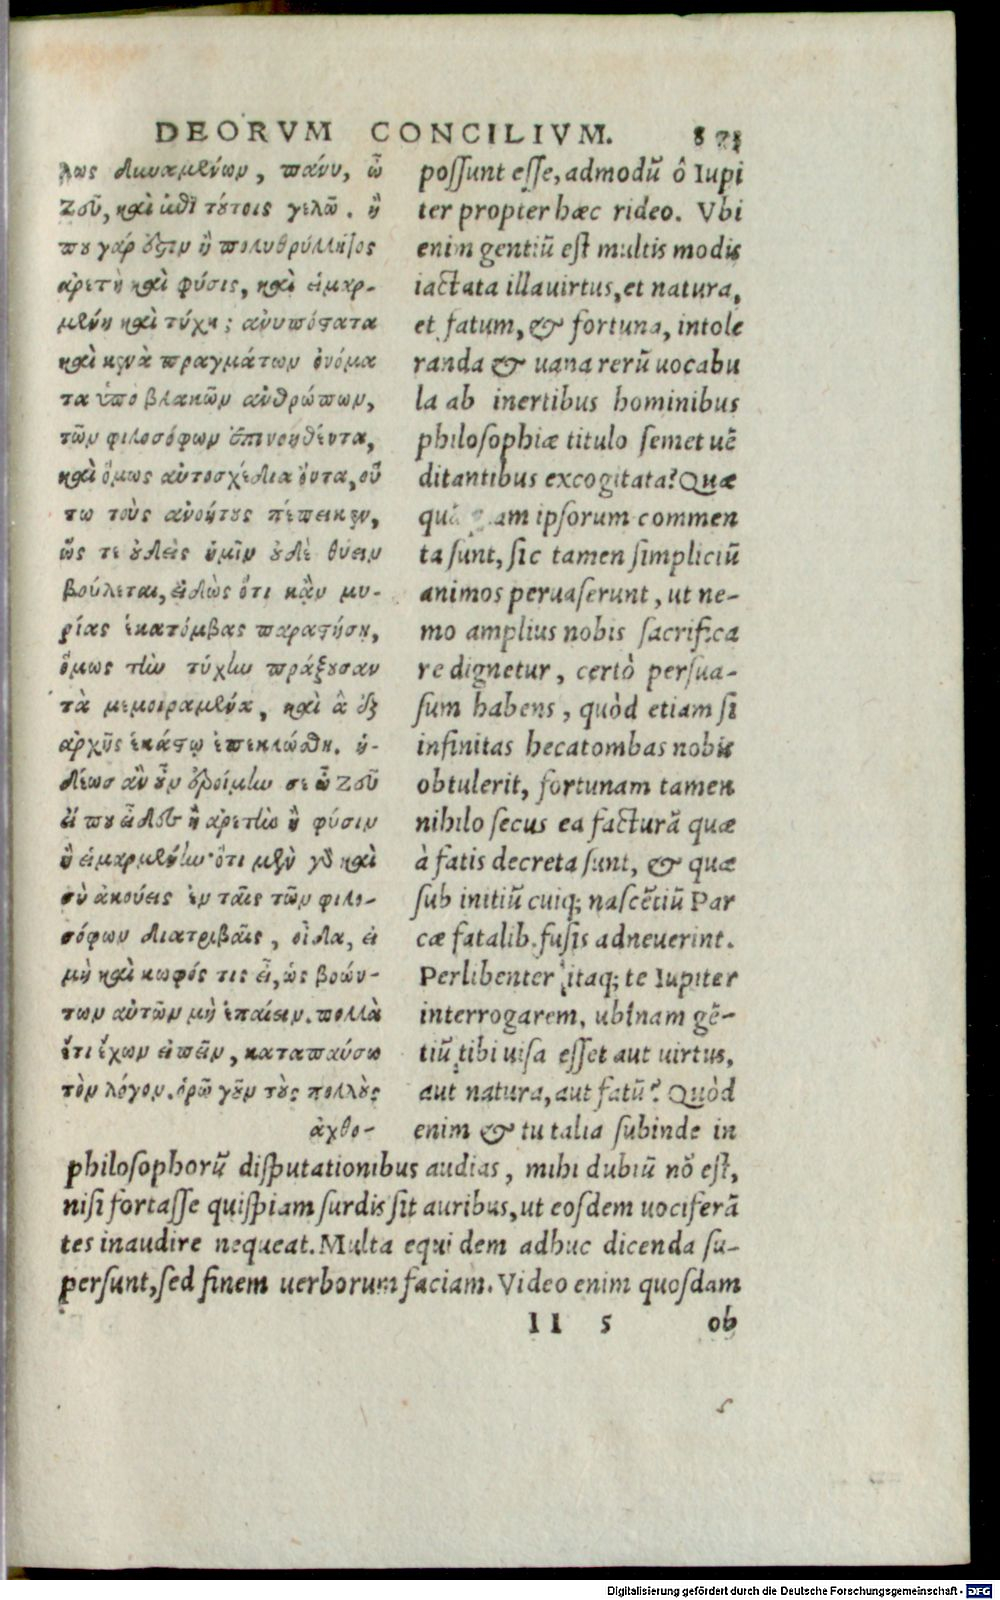 DEORVM CONCILIVM. 873
λως δυναμένων, πάνυ, ὦ
Ζεῦ, καὶ ἐπὶ τούτοις γελῶ. ἢ
που γάρ ἐστιν ἡ πολυθρύλλητος
ἀρετὴ καὶ φύσις, καὶ εἱμαρ-
μένη καὶ τύχη; ἀνυπόστατα
καὶ κενὰ πραγμάτων ὀνόμα
τα ὑπο βλακῶν ἀνθρώπων,
τῶν φιλοσόφων ἐπινοηθέντα,
καὶ ὅμως αὐτοσχέδια ὄντα, οὕ
τω τοὺς ἀνοήτους πέπεικεν,
ὥς τε οὐδεὶς ἡμῖν οὐδὲ θύειν
βούλεται, εἰδὼς ὅτι κἂν μυ-
ρίας ἑκατόμβας παραστήσῃ,
ὅμως τὴν τύχην πράξουσαν
τὰ μεμοιραμένα, καὶ ἃ ἐξ
ἀρχῆς ἑκάστῳ ἐπεκλώσθη. ἡ-
δέωσ ἂν οὖν ἐροίμην σε ὦ Ζεῦ
εἴ που εἶδες ἢ ἀρετὴν ἢ φύσιν
ἢ εἱμαρμένην· ὅτι μὲν γὰρ καὶ
σὺ ἀκούεις ἐν ταῖς τῶν φιλο-
σόφων διατριβαῖς, οἶδα, εἰ
μὴ καὶ κωφός τις εἶ, ὡς βοών-
των αὐτῶν μὴ ἐπαίειν. πολλὰ
ἔτι ἔχων εἰπεῖν, καταπαύσω
τὸν λόγον. ὁρῶ γοῦν τοὺς πολλοὺς
ἀχθο-
possunt esse, admodũ ô Iupi
ter propter hæc rideo. Vbi
enim gentiũ est multis modis
iactata illa uirtus, et natura,
et fatum, & fortuna, intole
randa & uana rerũ uocabu
la ab inertibus hominibus
philosophiæ titulo semet uẽ
ditantibus excogitata? Quæ
quã am ipsorum commen
ta sunt, sic tamen simpliciũ
animos peruaserunt, ut ne-
mo amplius nobis sacrifica
re dignetur, certò persua-
sum habens, quòd etiam si
infinitas hecatombas nobis
obtulerit, fortunam tamen
nihilo secus ea facturã quæ
à fatis decreta sunt, & quæ
sub initiũ cuiq; nascẽtiũ Par
cæ fatalib. fusis adneuerint.
Perlibenter itaq; te Iupiter
interrogarem, ubinam gẽ-
tiũ tibi uisa esset aut uirtus,
aut natura, aut fatũ? Quòd
enim & tu talia subinde in
philosophorũ disputationibus audias, mihi dubiũ nõ est,
nisi fortasse quispiam surdis sit auribus, ut eosdem uociferã
tes inaudire nequeat. Multa equidem adhuc dicenda su-
persunt, sed finem uerborum faciam. Video enim quosdam
ll 5 ob
Digitalisierung gefördert durch die Deutsche Forschungsgemeinschaft - DFG